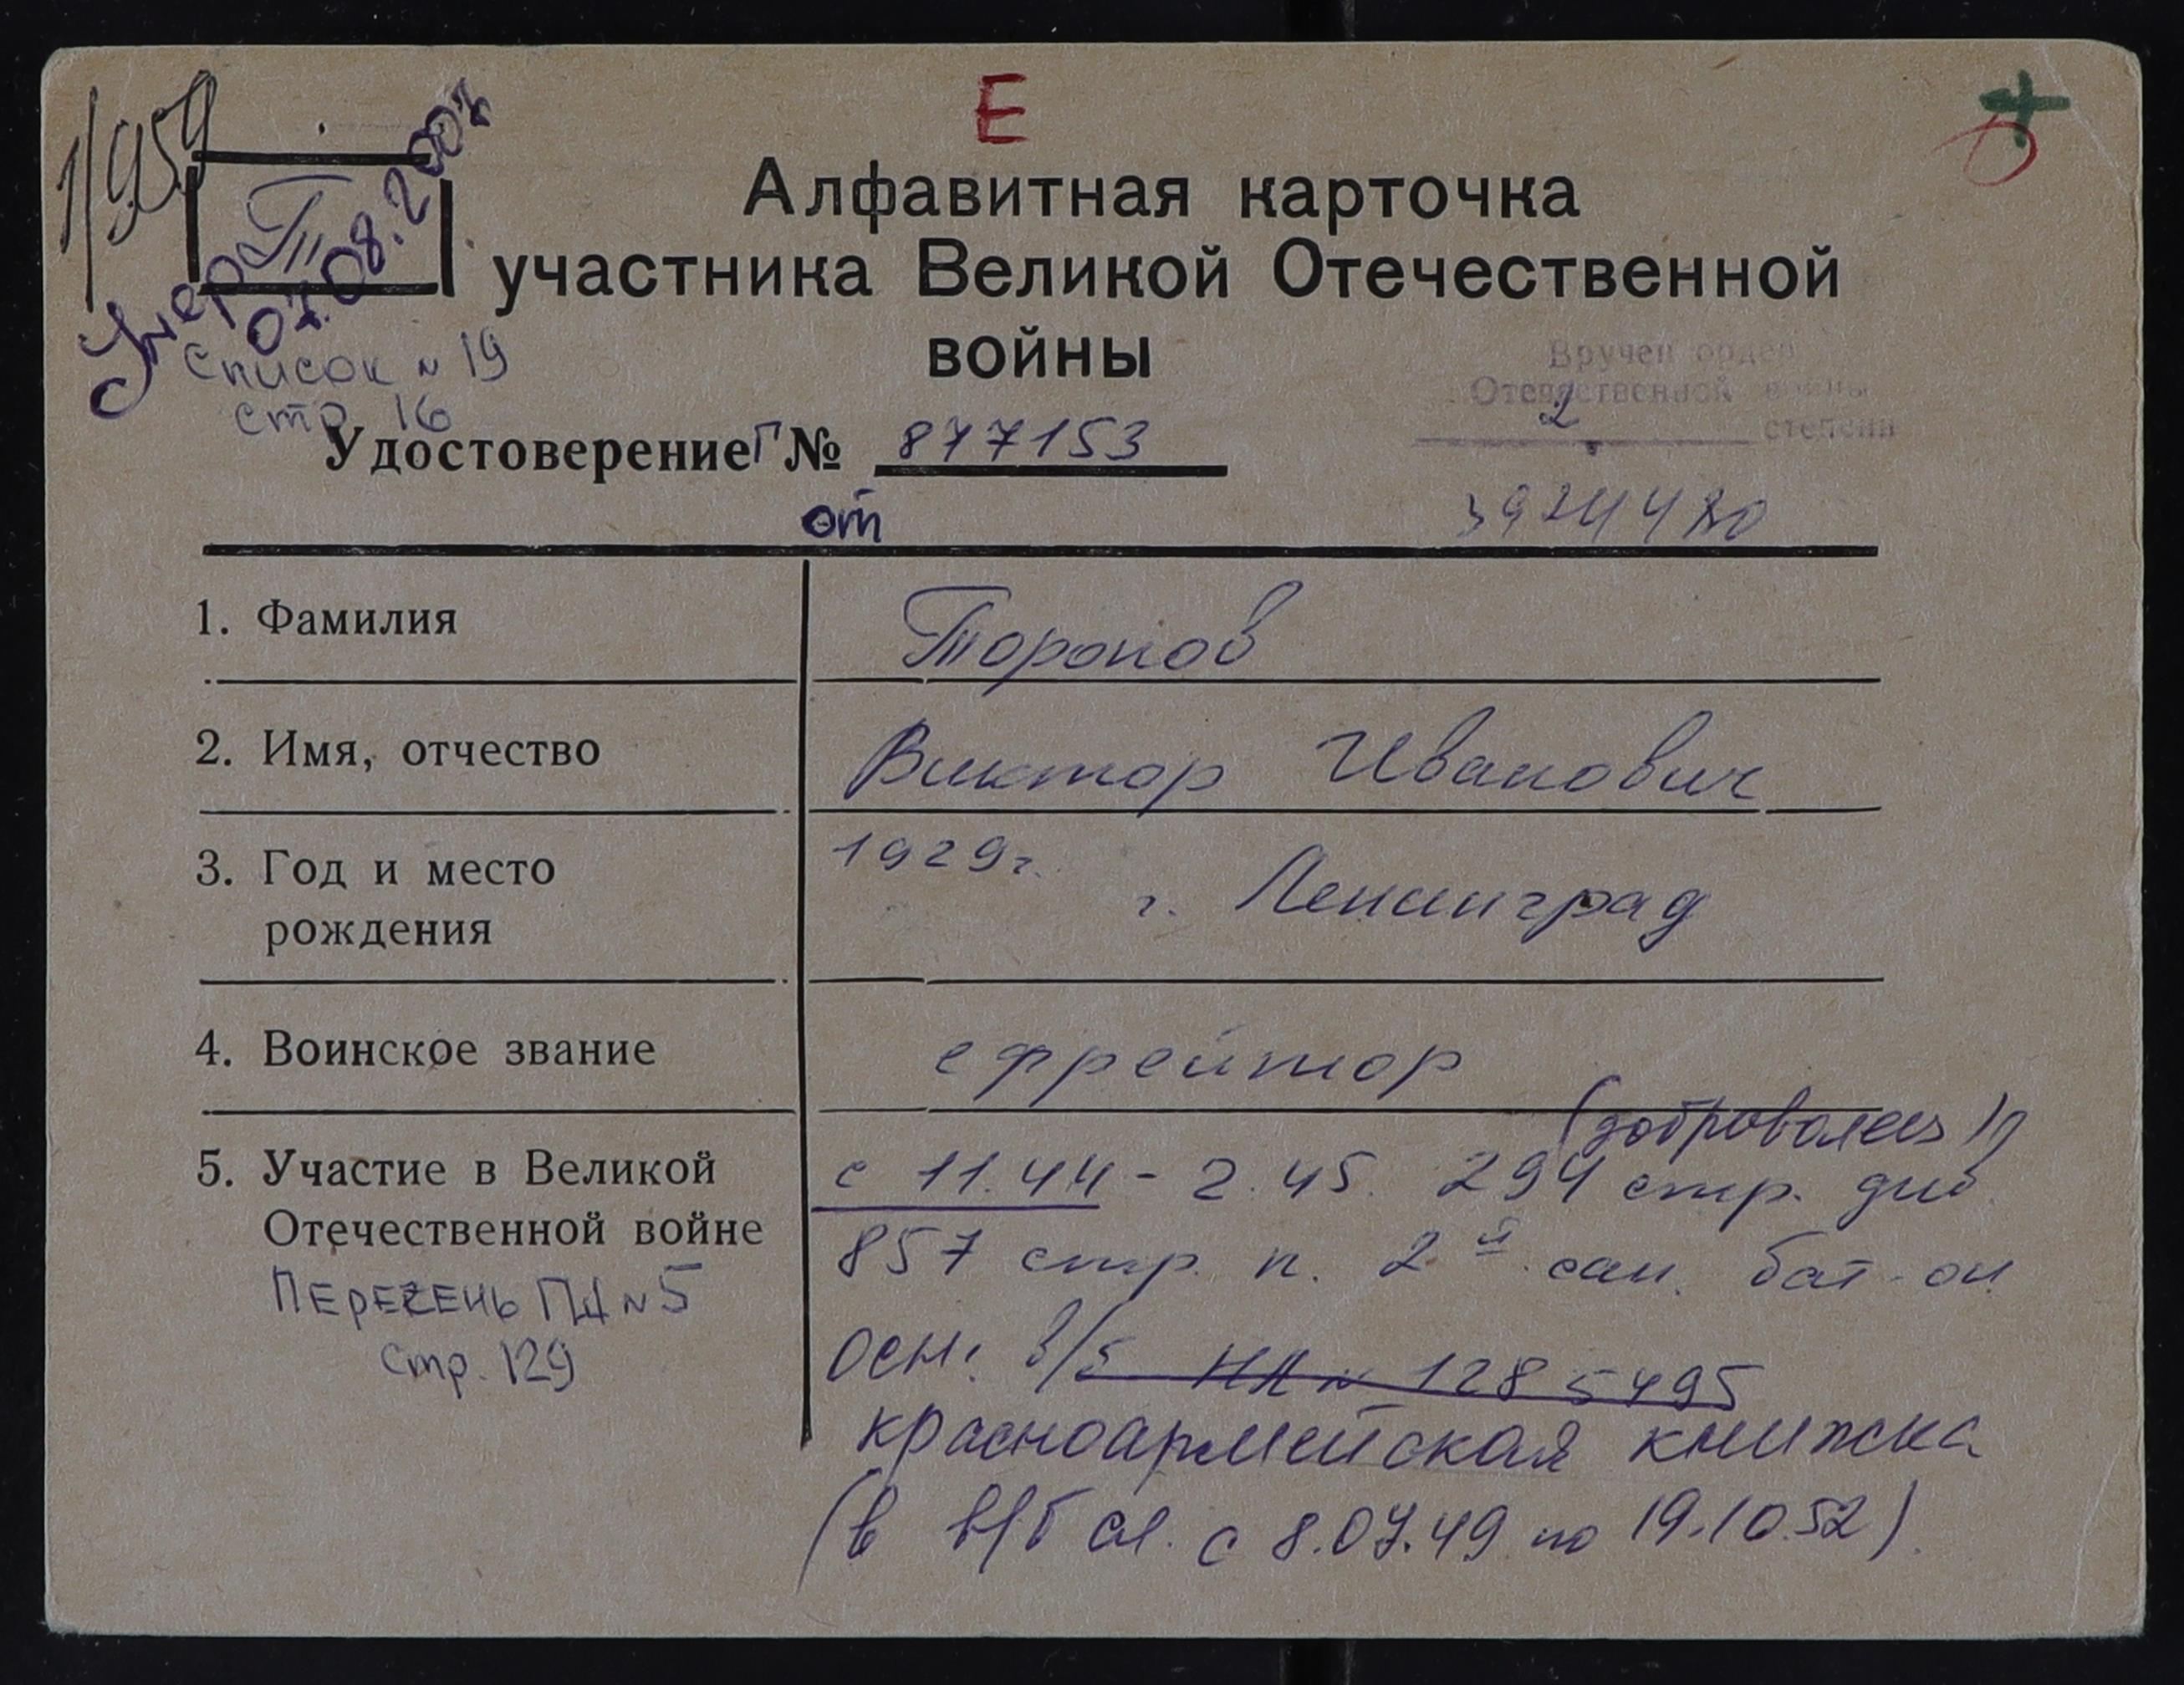 1/959
Е
Т
Умер
07.08.2007
Алфавитная карточка
участника Великой Отечественной
войны
Список № 19
стр. 16
Вручен орден
Отечественной войны
2 степени
Удостоверение Г № 877153
от
1. Фамилия
Торопов
2. Имя, отчество
Виктор Иванович
3. Год и место
рождения
1929г.
г. Ленинград
4. Воинское звание
ефрейтор
(доброволец)
5. Участие в Великой
Отечественной войне
с 11.44 - 2.45. 294 стр. див.
857 стр. п. 2й сан. бат-он
Перечень ПД № 5
стр. 129
осн: в/б НД № 1285495
красноармейская книжка
(в в/б сл. с 8.07.49 по 19.10.52).